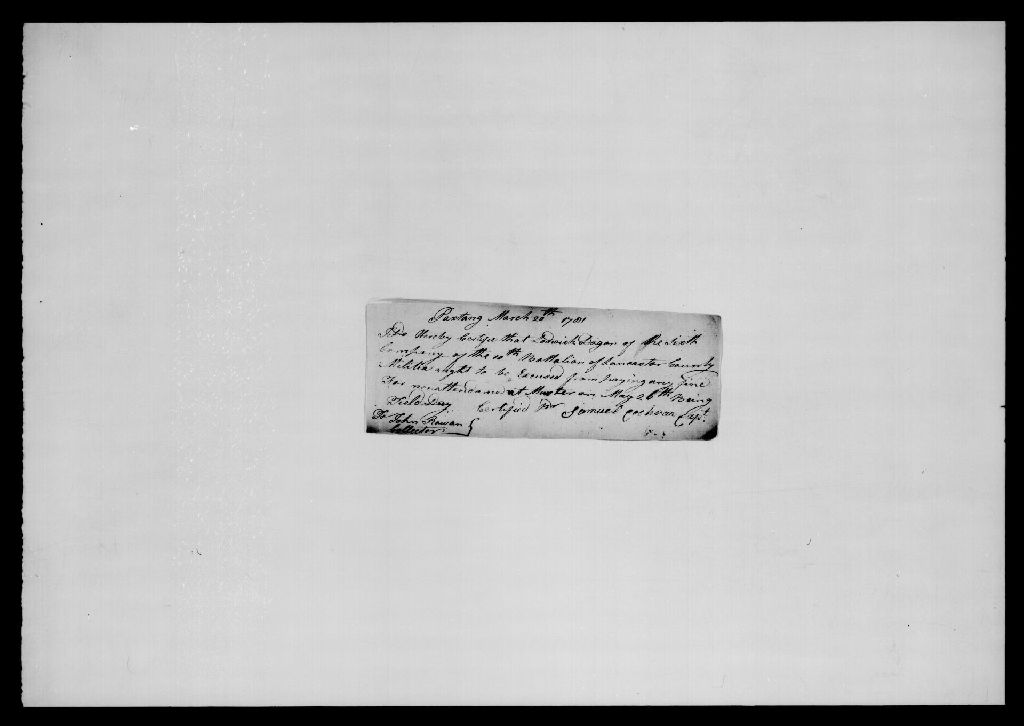 Paxtang March 20th 1781
I Do Hereby Certify that Lodwick Dagan of the Sixth
Company of the 10th Battalian of Lancaster County
Militia ought to be Excused from paying any fine
For nonattendance at Muster on May 26th Being
Field Day Certified Pr Samuel Cochran Capt.
To John Rowan
Collector